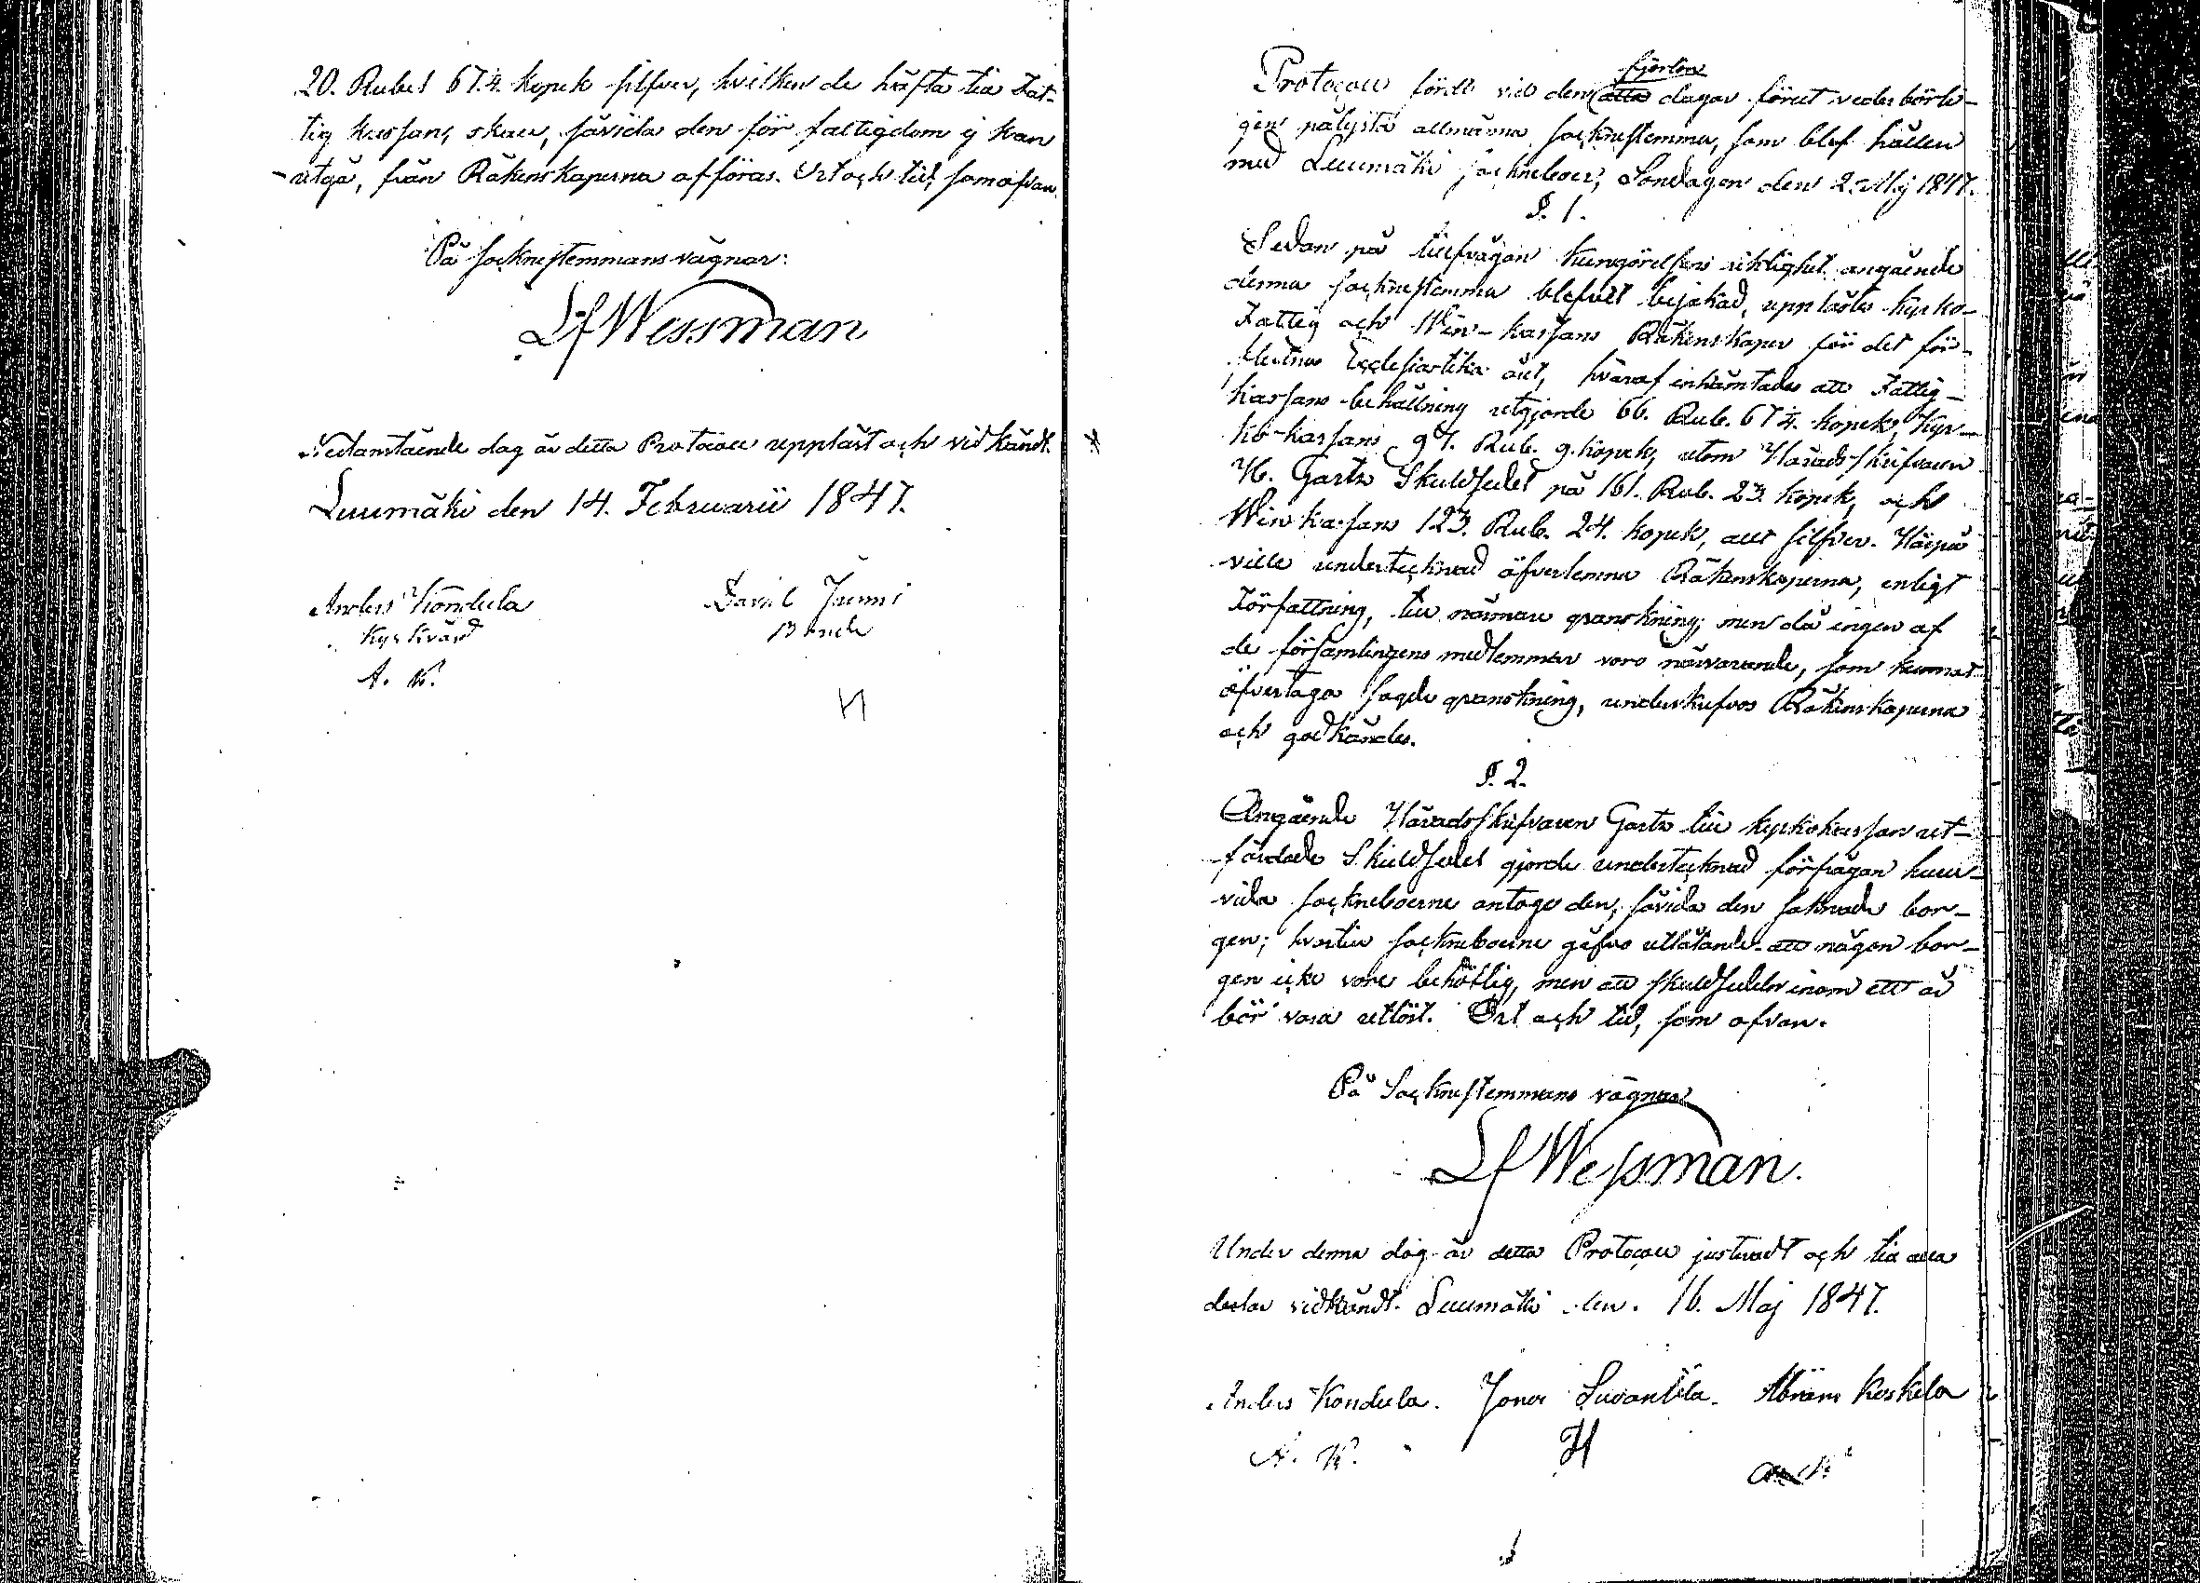 20. Rubel 67¼ kopek silfver, hvilken de häfta till Fat-
tig kassan, skall, såvida den för fattigdom ej kan
utgå, från Räkenskaperna afföras. Ort och tid, som ofvan.
På sockenstemmans vägnar:
Lf Wessman
Nedanstående dag är detta Protocoll uppläst och vidkändt.
Luumäki den 14. Februarii 1847.
Anders Kondula David Jurmi
Kyrkvärd Bonde
A. K.
Protocoll fördt vid den fjorton åtta dagar förut vederbörli-
gen pålysta allmänna sockenstemma, som blef hållen
med Luumäki sockneboer, Söndagen den 2. Maj 1847.
§. 1.
Sedan på tillfrågan kungörelsens riktighet angående
denna sockenstemma blefvit bejakad, upplästes kyrko-
Fattig och Vin-kassans Räkenskaper för det för-
flutna Ecclesiastika året, hvaraf inhämtades att Fattig-
kassans behållning utgjorde 66. Rub. 67¼ kopek, Kyr-
ko-kassans 97. Rub. 9. kopek, utom Häradsskrifvaren
H. Gartz Skuldsedel på 161. Rub. 23. kopek, och
Winkassans 123. Rub. 24. kopek, allt silfver. Härpå
ville undertecknad öfverlemna Räkenskaperna, enligt
Författning, till närmare granskning; men då ingen af
de församlingens medlemmar voro närvarande, som kunnat
öfvertaga sagde granskning, underskrefvos Räkenskaperna
och godkändes.
§. 2.
Angående Häradsskrifvaren Gartz till kyrkokassan ut-
färdade Skuldsedel gjorde undertecknad förfrågan huru-
vida sockneboerne antoge den, såvida den saknade bor-
gen; hvartill sockneboerne gåfvo utlåtande att någon bor-
gen icke vore behöflig, men att skuldsedeln inom ett år
bör vara utlöst. Ort och tid, som ofvan.
På Sockenstemmans vägnar
Lf Wessman.
Under denna dag är detta Protocoll justeradt och till alla
delar vidkändt. Luumäki den. 16. Maj 1847.
Anders Kondula. Jonas Suvantila. Abram Koskela
A. K. H